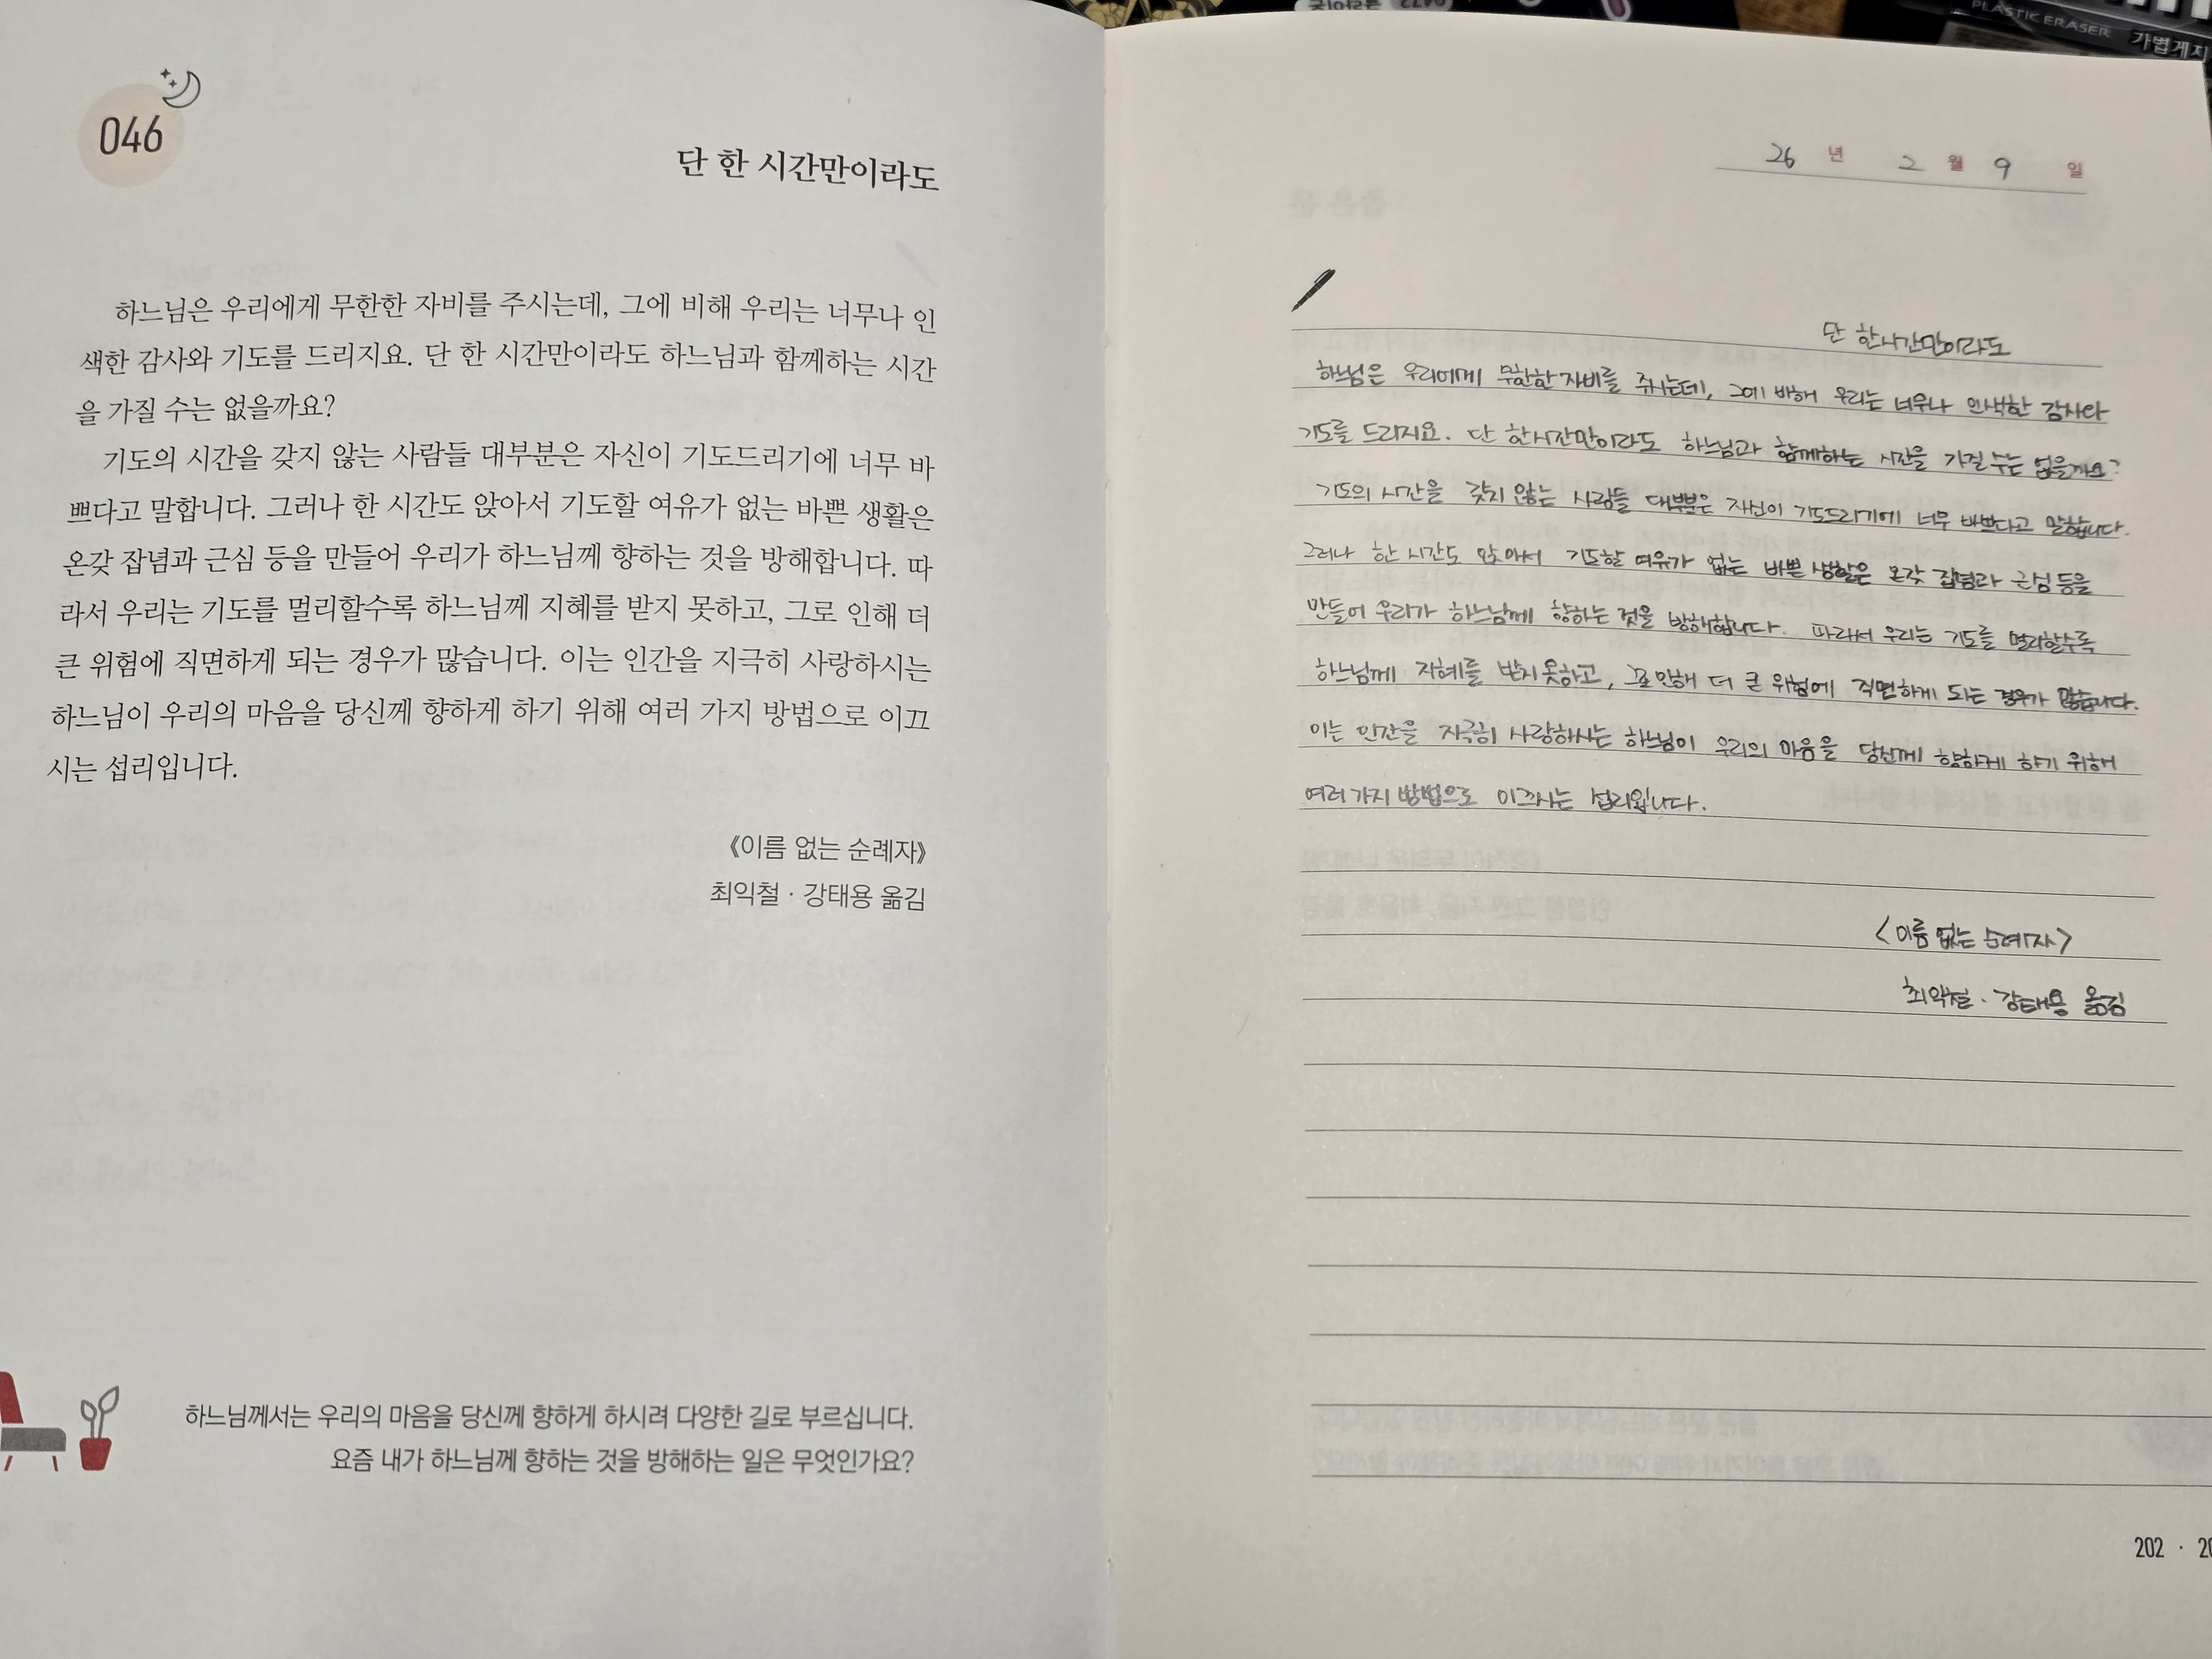 PLASTIC ERASER
가볍게지
046
단 한 시간만이라도
하느님은 우리에게 무한한 자비를 주시는데, 그에 비해 우리는 너무나 인
색한 감사와 기도를 드리지요. 단 한 시간만이라도 하느님과 함께하는 시간
을 가질 수는 없을까요?
기도의 시간을 갖지 않는 사람들 대부분은 자신이 기도드리기에 너무 바
쁘다고 말합니다. 그러나 한 시간도 앉아서 기도할 여유가 없는 바쁜 생활은
온갖 잡념과 근심 등을 만들어 우리가 하느님께 향하는 것을 방해합니다. 따
라서 우리는 기도를 멀리할수록 하느님께 지혜를 받지 못하고, 그로 인해 더
큰 위험에 직면하게 되는 경우가 많습니다. 이는 인간을 지극히 사랑하시는
하느님이 우리의 마음을 당신께 향하게 하기 위해 여러 가지 방법으로 이끄
시는 섭리입니다.
《이름 없는 순례자》
최익철 · 강태용 옮김
하느님께서는 우리의 마음을 당신께 향하게 하시려 다양한 길로 부르십니다.
요즘 내가 하느님께 향하는 것을 방해하는 일은 무엇인가요?
26 년 2 월 9 일
단 한시간만이라도
하느님은 우리에게 무한한 자비를 주시는데, 그에 비해 우리는 너무나 인색한 감사와
기도를 드리지요. 단 한시간만이라도 하느님과 함께하는 시간을 가질 수는 없을까요?
기도의 시간을 갖지 않는 사람들 대부분은 자신이 기도드리기에 너무 바쁘다고 말합니다.
그러나 한 시간도 앉아서 기도할 여유가 없는 바쁜 생활은 온갖 잡념과 근심 등을
만들어 우리가 하느님께 향하는 것을 방해합니다. 따라서 우리는 기도를 멀리할수록
하느님께 지혜를 받지 못하고, 인해 더 큰 위험에 직면하게 되는 경우가 많습니다.
이는 인간을 지극히 사랑하시는 하느님이 우리의 마음을 당신께 향하게 하기 위해
여러 가지 방법으로 이끄시는 섭리입니다.
<이름 없는 순례자>
최익철 · 강태용 옮김
202 · 20